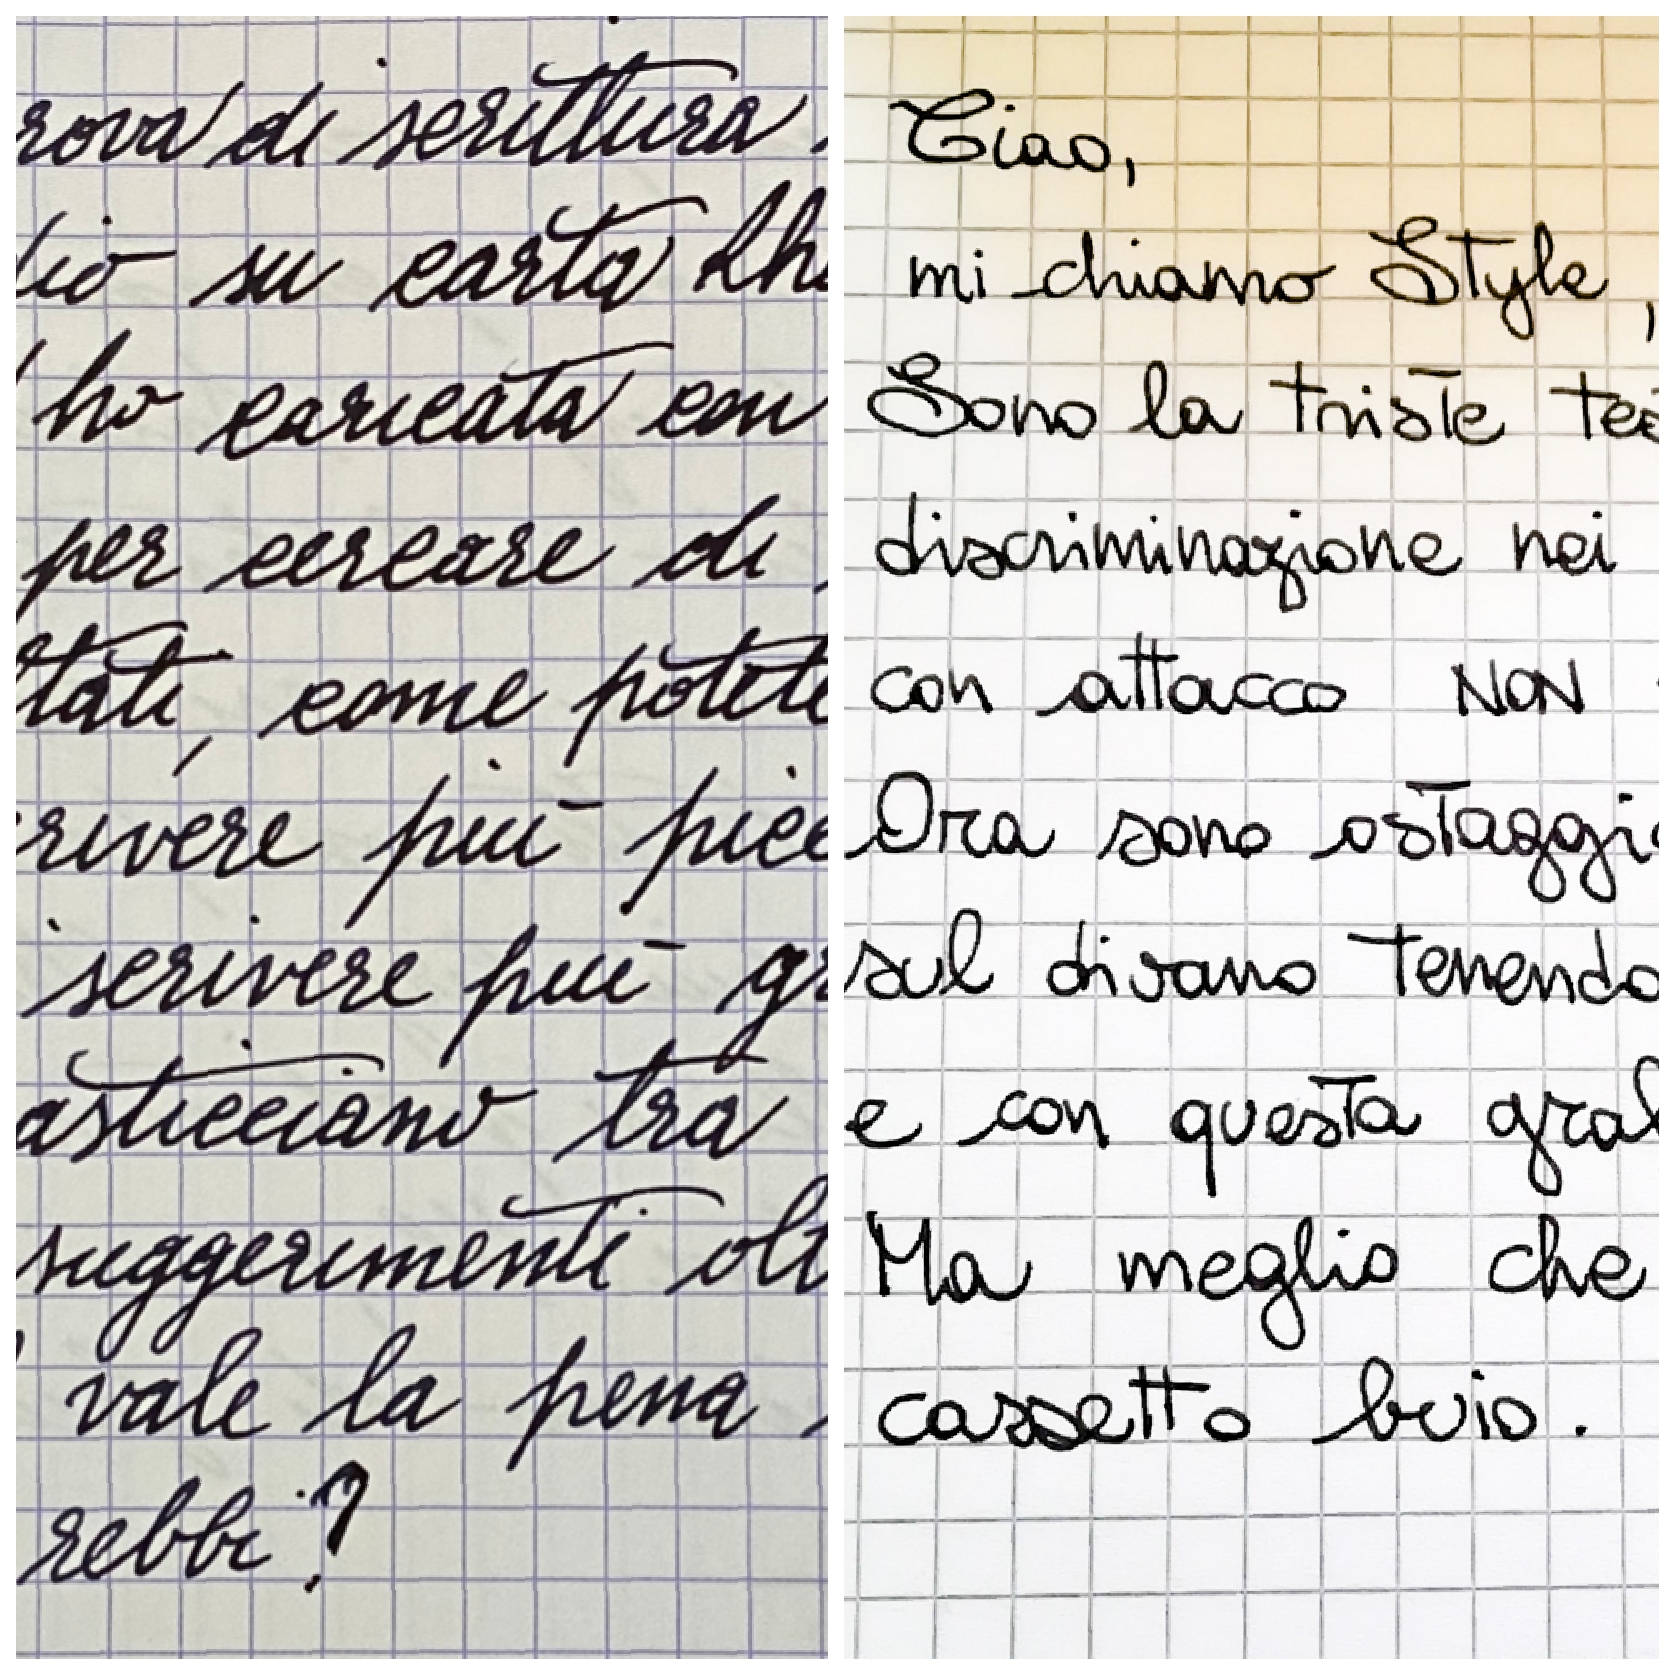 rova di scrittura.
su carta Rh
ho caricata con
per cercare di
tati, come potete
rivere più picc
scrivere più gr
asticciano tra
suggerimenti olt
vale la pena
rebbe?
Ciao,
mi chiamo Style,
Sono la triste tes
discriminazione nei
con attacco NON
Ora sono ostaggio
sul divano tenendo
e con questa graf
Ma meglio che
cassetto buio.